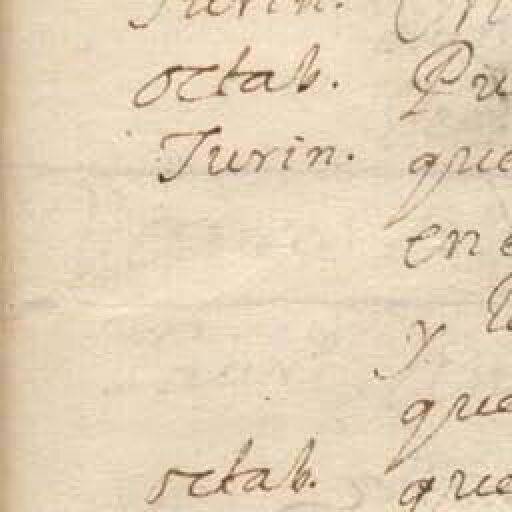 Turin.
octab. Pu
Turin. que
en e
y
que
octab. que